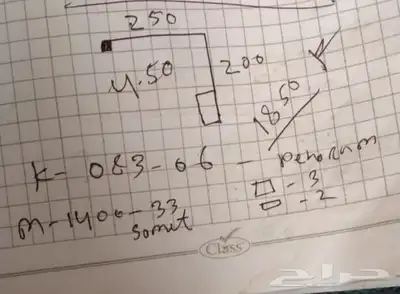 250
4.50
200
18 50
K- 083-06 - penorum
- 3
- 2
m-1400-33
somet
Class
حراج